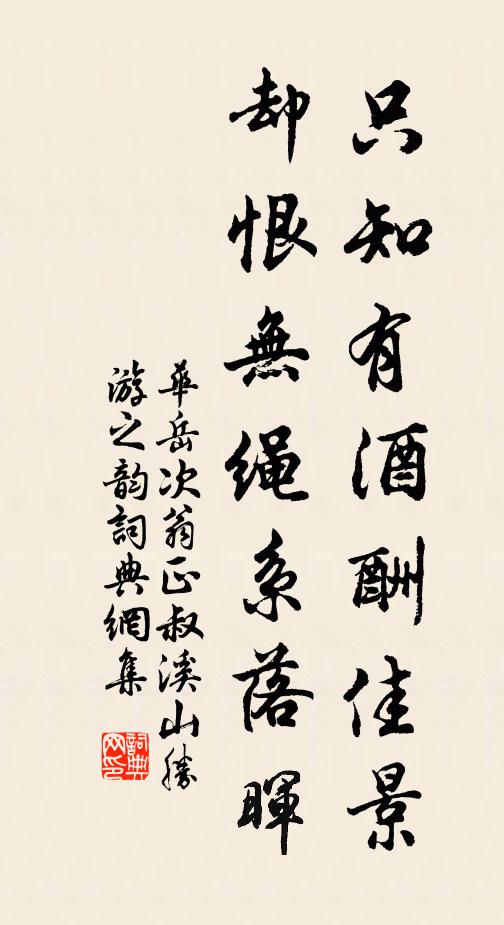 只知有酒酬佳景
却恨無绳系落暉
華岳次翁正叔溪山勝
游之韵詞典網集
詞典
网印